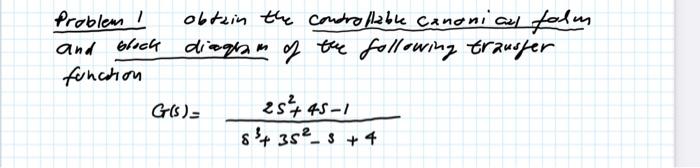 Problem 1 obtain the controllable canonical form
and block diagram of the following transfer
function
G(s)= 2s²+4s-1
s³+3s²-s+4